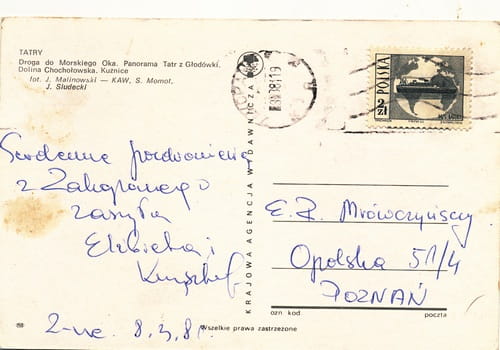 TATRY
Droga do Morskiego Oka. Panorama Tatr z Głodówki.
Dolina Chochołowska. Kuźnice
fot J. Malinowski — KAW, S. Momot,
J. Siudecki
Serdeczne pozdrowienia
z Zakopanego
zasyła
Elżbieta i
Krzysztof.
Z-ne. 8.3.81.
KRAJOWA AGENCJA WYDAWNICZA
POLSKA
2 zł
E. R. Mrówczyńscy
Opolska 51/4
POZNAŃ
ozn kod poczta
Wszelkie prawa zastrzeżone